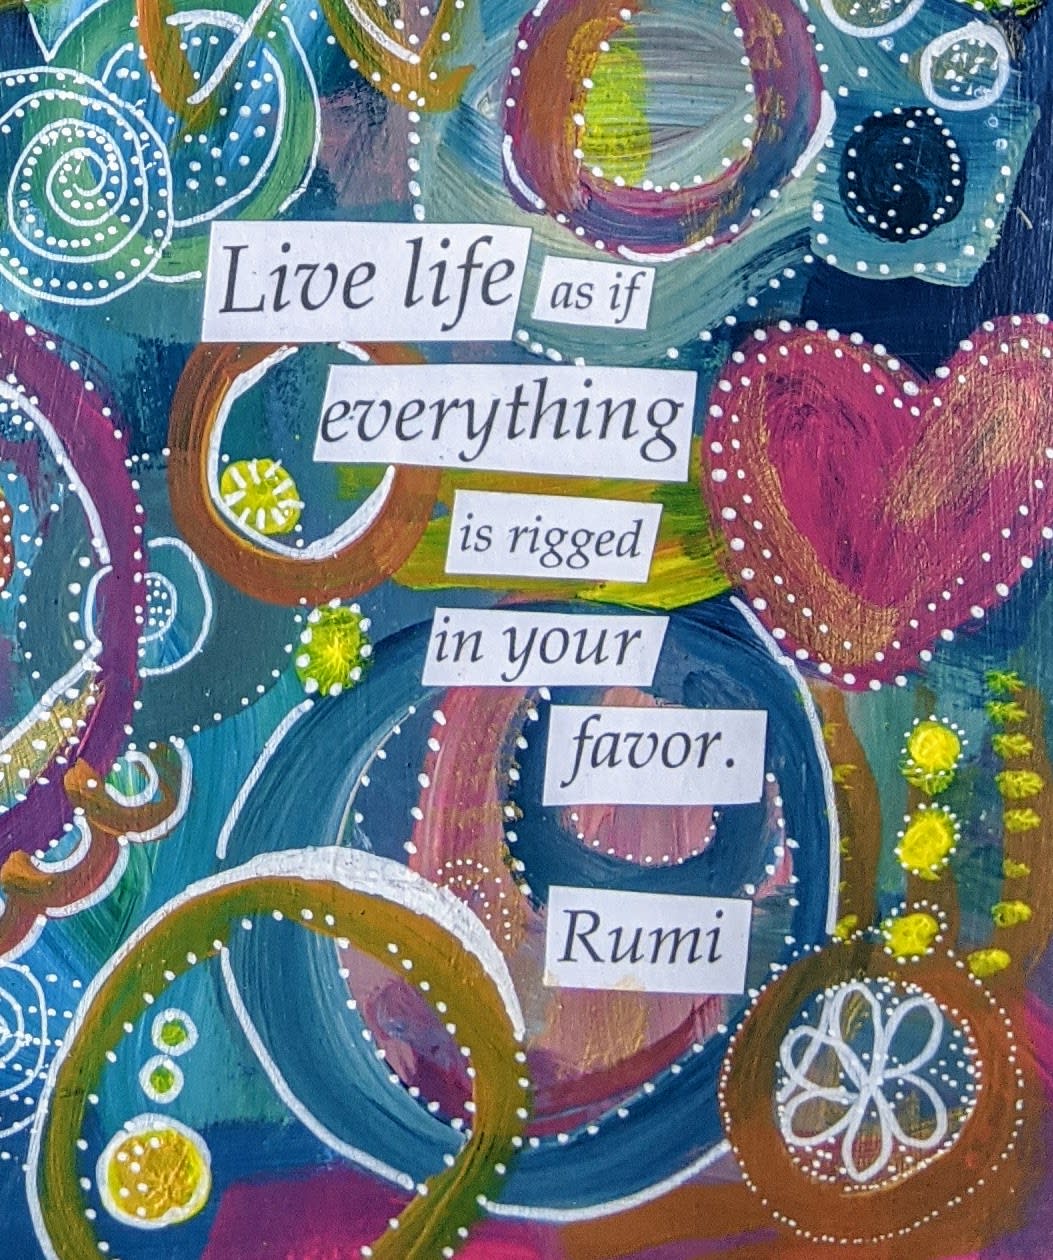 Live life as if
everything
is rigged
in your
favor.
Rumi